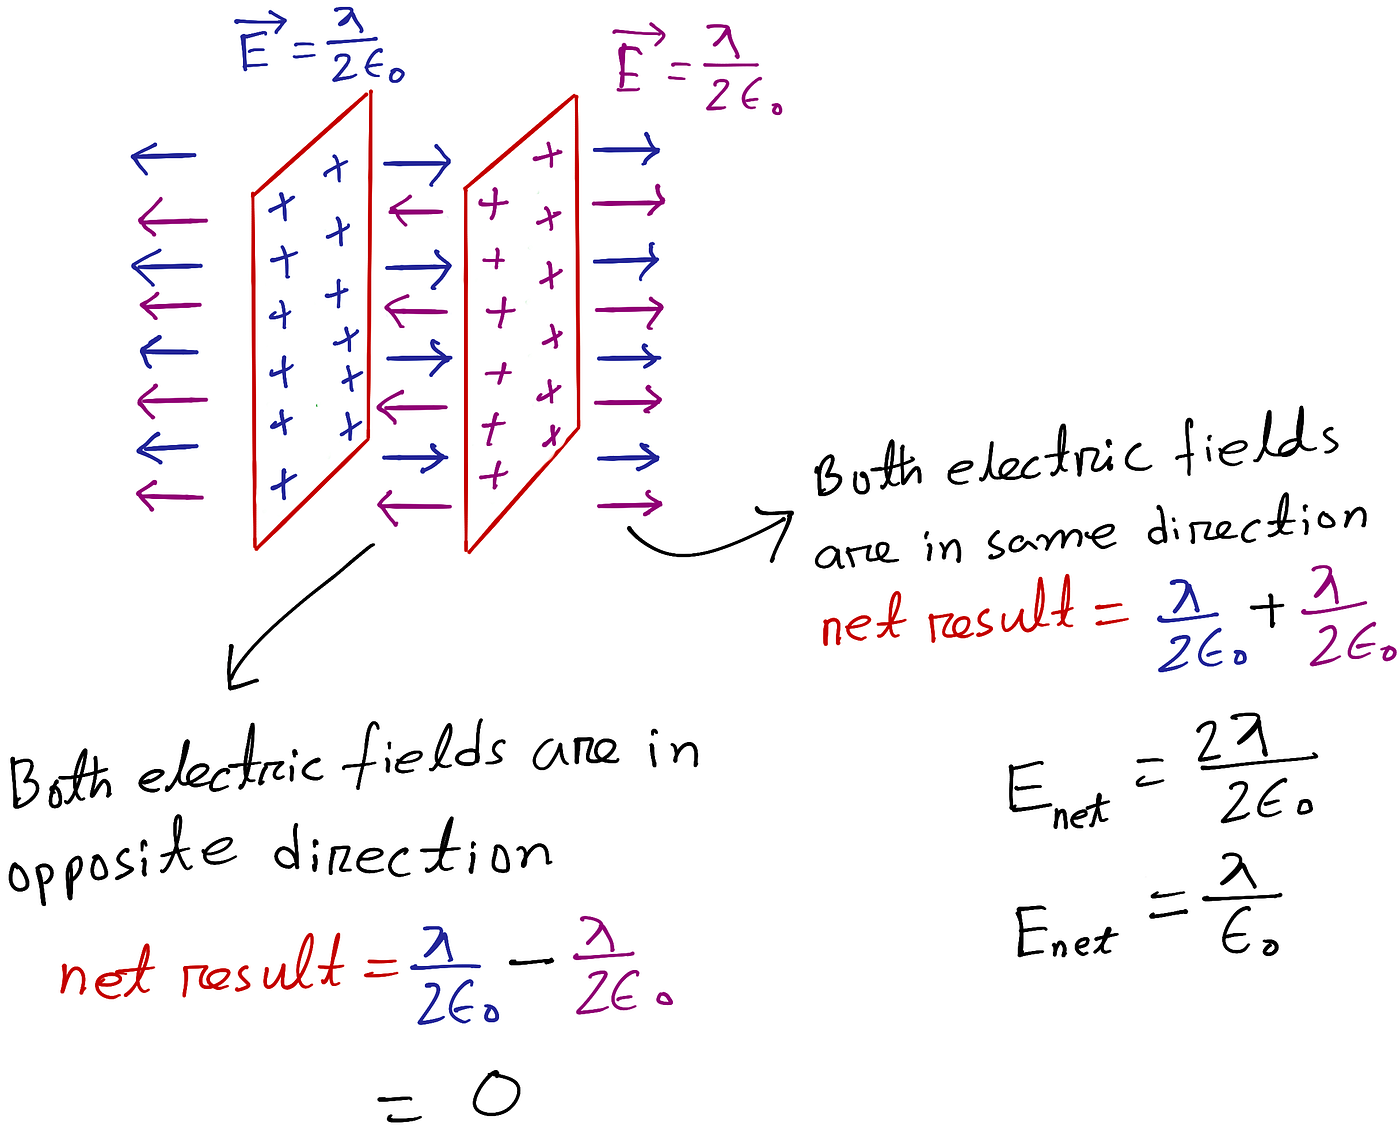 E⃗ = λ/2ϵ₀
E⃗ = λ/2ϵ₀
+ + + + + + + + + + + +
+ + + + + + + + + + + +
Both electric fields
are in same direction
net result = λ/2ϵ₀ + λ/2ϵ₀
E_net = 2λ/2ϵ₀
E_net = λ/ϵ₀
Both electric fields are in
opposite direction
net result = λ/2ϵ₀ − λ/2ϵ₀
= 0